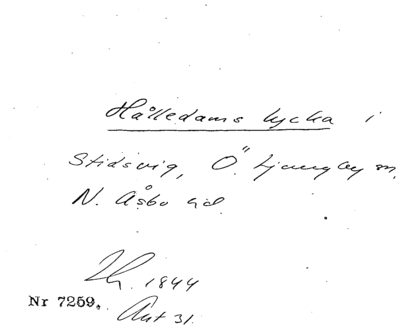 Hålledams lycka i
Stidsvig, Ö. Ljungby sn,
N. Åsbo hd.
1844
Nr 7259. Aut 31.